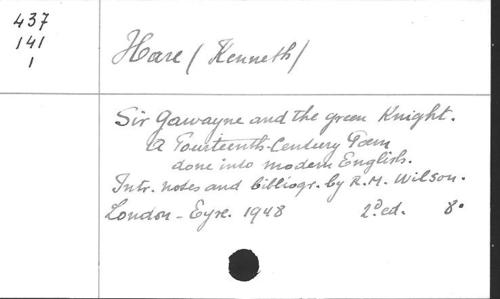 437
141
1
Hare (Kenneth)
Sir Gawayne and the green Knight.
A Fourteenth-Century Poem
done into modern English.
Intr. notes and bibliogr. by R.M. Wilson.
London - Eyre. 1948 2ª ed. 8°